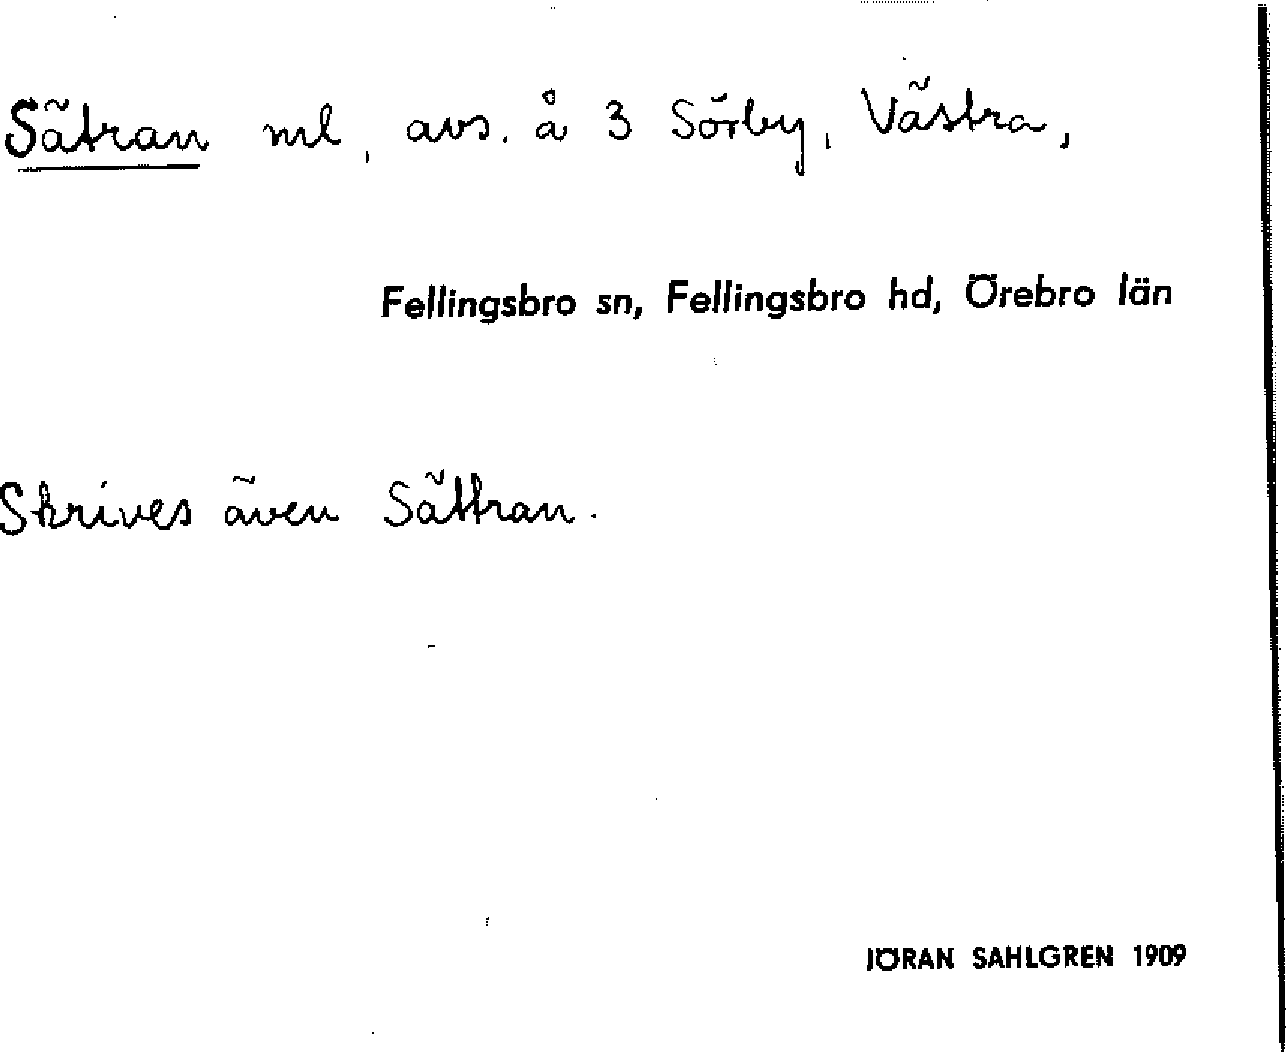 Sätran ml, avs. å 3 Sörby, Västra,
Fellingsbro sn, Fellingsbro hd, Örebro län
Skrives även Sättran.
JÖRAN SAHLGREN 1909